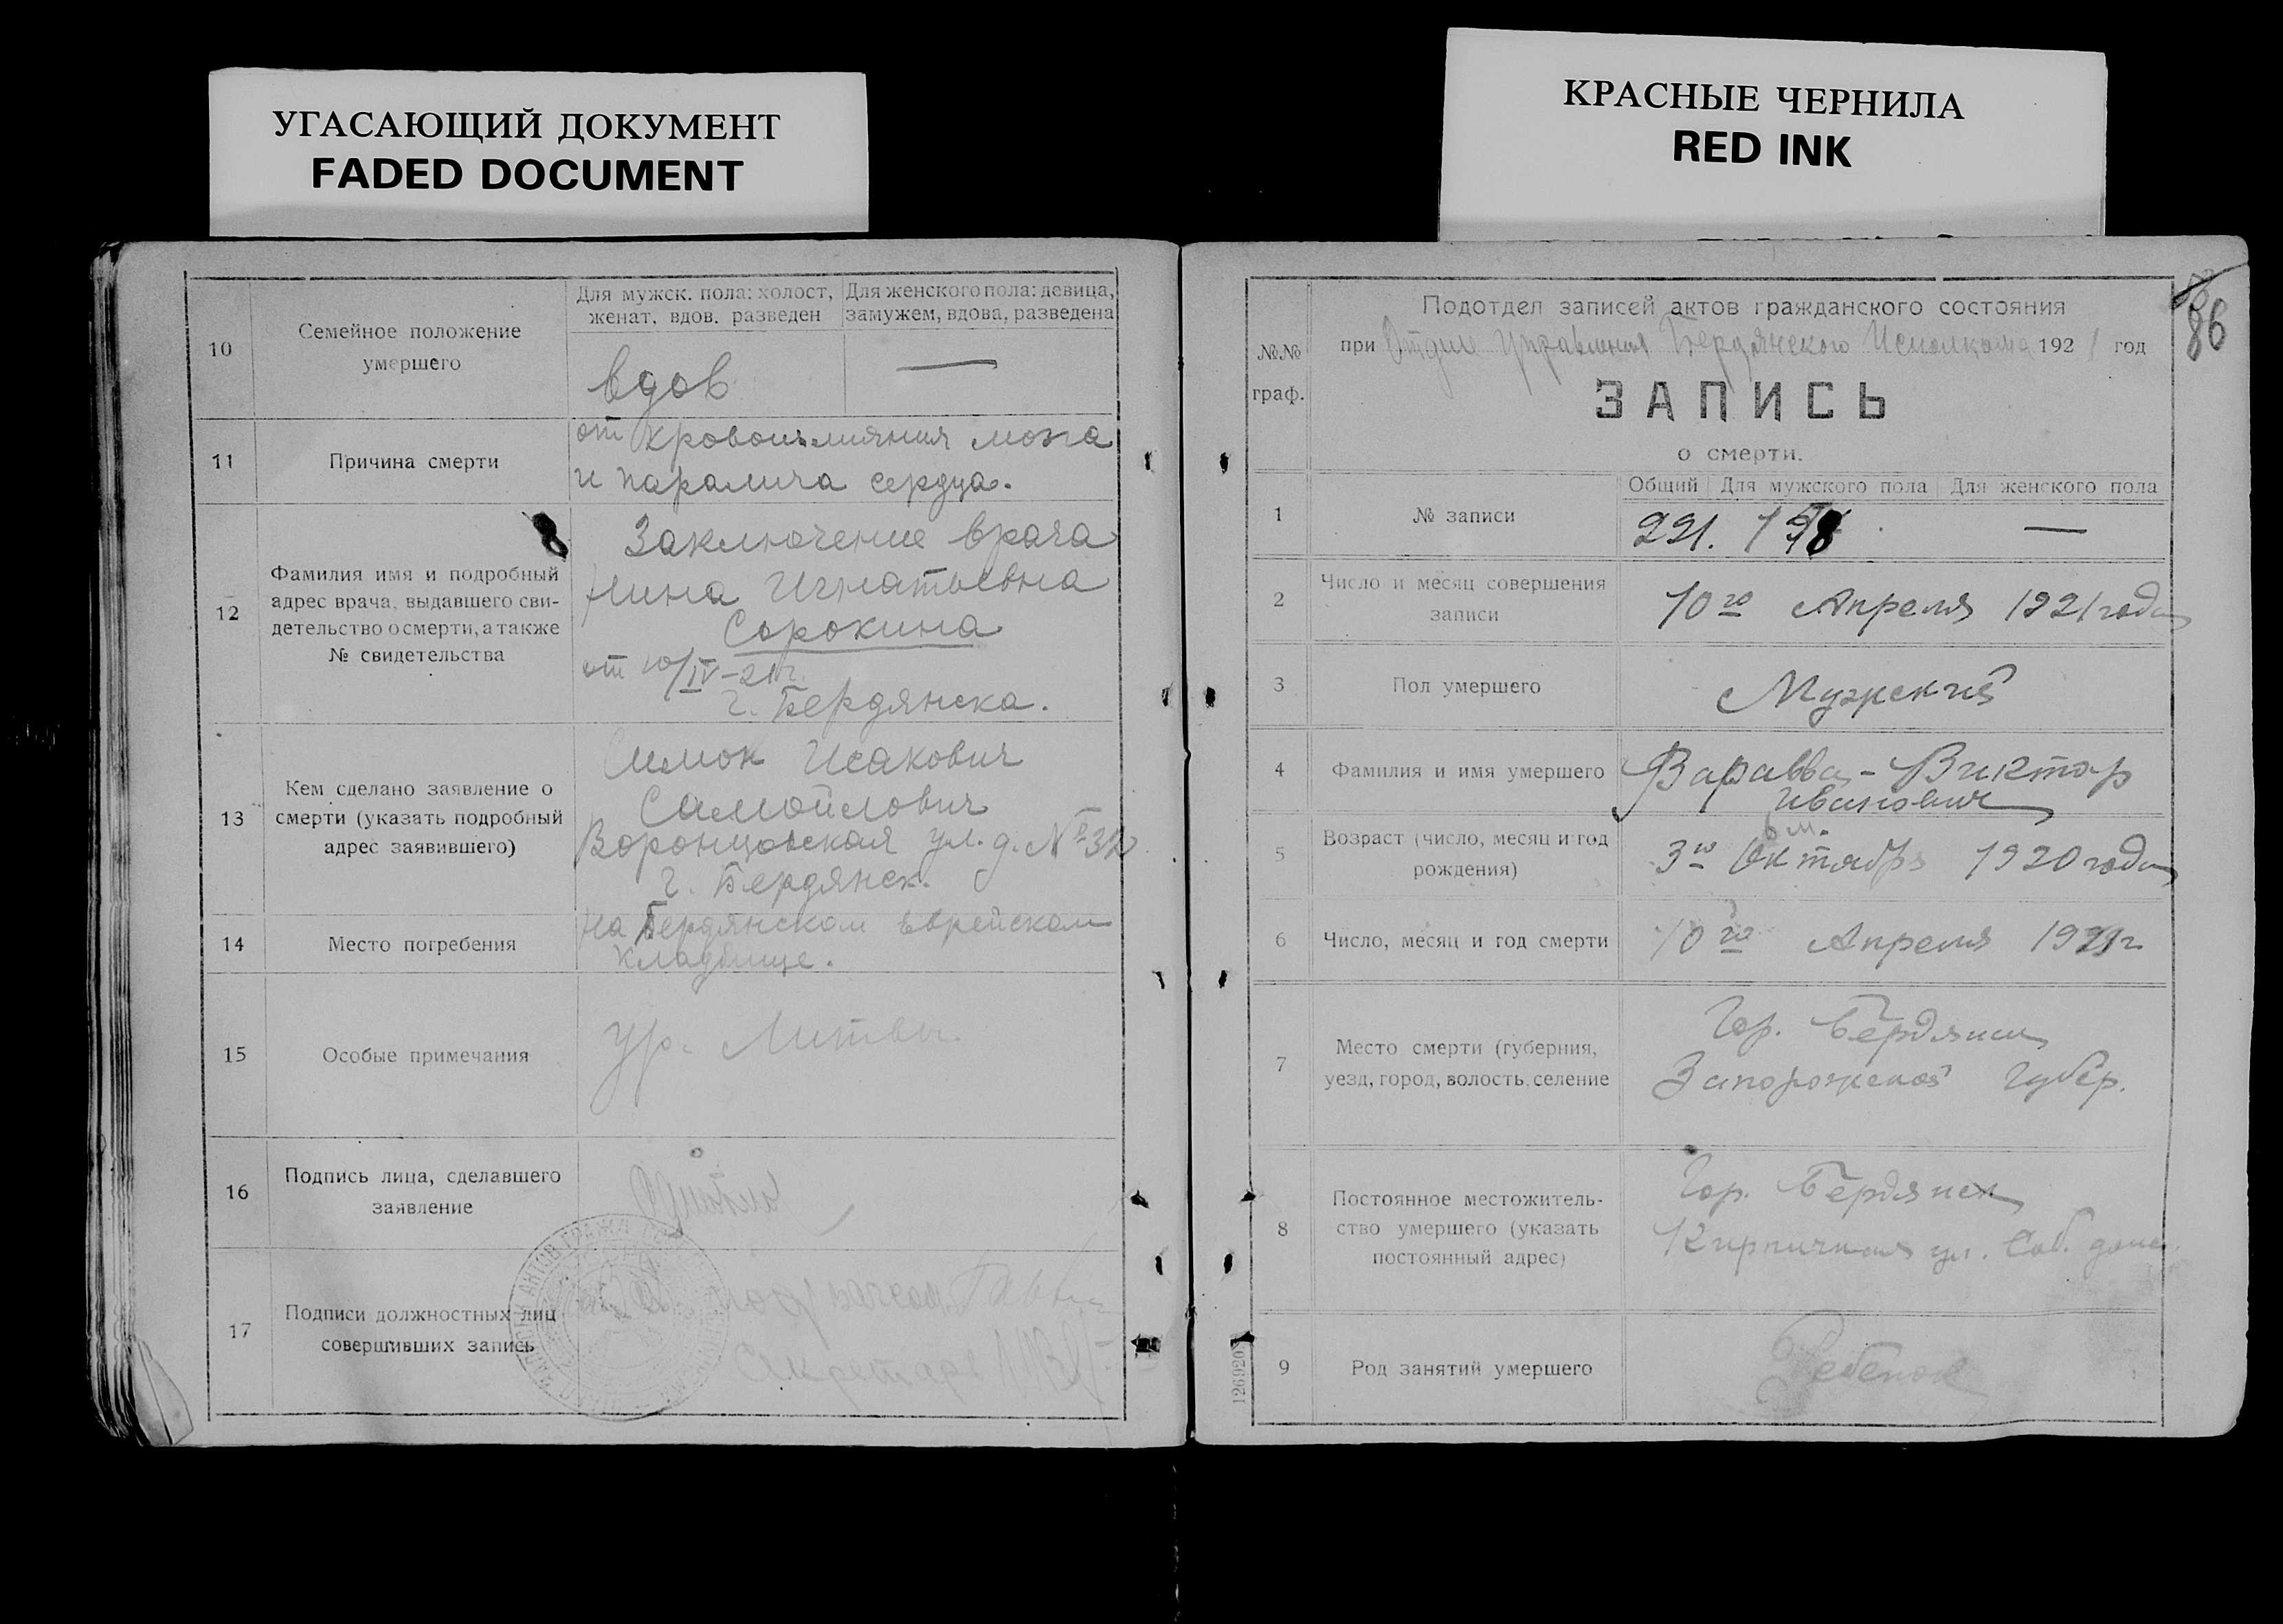 УГАСАЮЩИЙ ДОКУМЕНТ
FADED DOCUMENT
КРАСНЫЕ ЧЕРНИЛА
RED INK
10
Семейное положение
умершего
Для мужск. пола: холост,
женат, вдов. разведен
Для женского пола: девица,
замужем, вдова, разведена
вдов
—
11
Причина смерти
от кровоизлияния мозга
и паралича сердца.
12
Фамилия имя и подробный
адрес врача, выдавшего сви-
детельство о смерти, а также
№ свидетельства
Заключение врача
Нина Игнатьевна
Сорокина
от 10/IV-21 г.
г. Бердянска.
13
Кем сделано заявление о
смерти (указать подробный
адрес заявившего)
Исакович
Самойлович
Воронцовская ул. д. №
г. Бердянск.
14
Место погребения
на Бердянском еврейском
кладбище.
15
Особые примечания
ур. Литвы
16
Подпись лица, сделавшего
заявление
17
Подписи должностных лиц
совершивших запись
Секретарь
86
№№
граф.
Подотдел записей актов гражданского состояния
при Отделе Управления Бердянского Исполкома 1921 год
ЗАПИСЬ
о смерти.
Общий
Для мужского пола
Для женского пола
1
№ записи
221.
—
2
Число и месяц совершения
записи
10го Апреля 1921 года
3
Пол умершего
Мужский
4
Фамилия и имя умершего
Варавва - Виктор
Иванович
5
Возраст (число, месяц и год
рождения)
6 м.
3го Октября 1920 года
6
Число, месяц и год смерти
10го Апреля 1921 г.
7
Место смерти (губерния,
уезд, город, волость, селение
Гор. Бердянск
Запорожской Губер.
8
Постоянное местожитель-
ство умершего (указать
постоянный адрес)
Гор. Бердянск
Кирпичная ул. Соб. дом
9
Род занятий умершего
Ребенок
126920